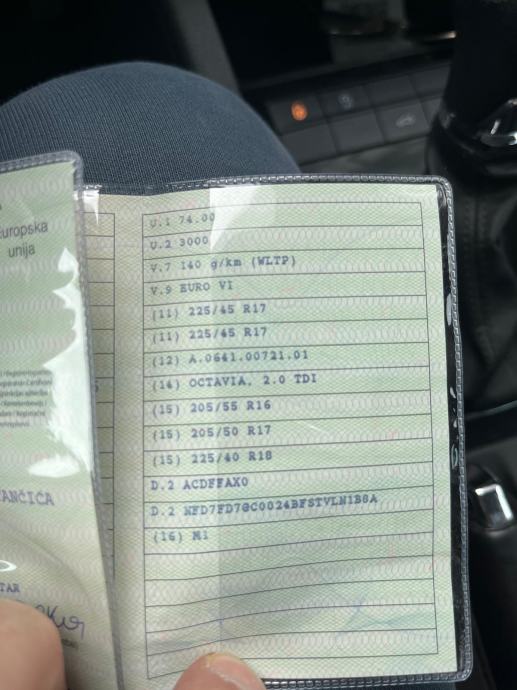 Europska
unija
ANČIĆA
TAR
U.1 74.00
U.2 3000
V.7 140 g/km (WLTP)
V.9 EURO VI
(11) 225/45 R17
(11) 225/45 R17
(12) A.0641.00721.01
(14) OCTAVIA, 2.0 TDI
(15) 205/55 R16
(15) 205/50 R17
(15) 225/40 R18
D.2 ACDFFAX0
D.2 NFD7FD7GC0024BFSTVLN1B8A
(16) M1